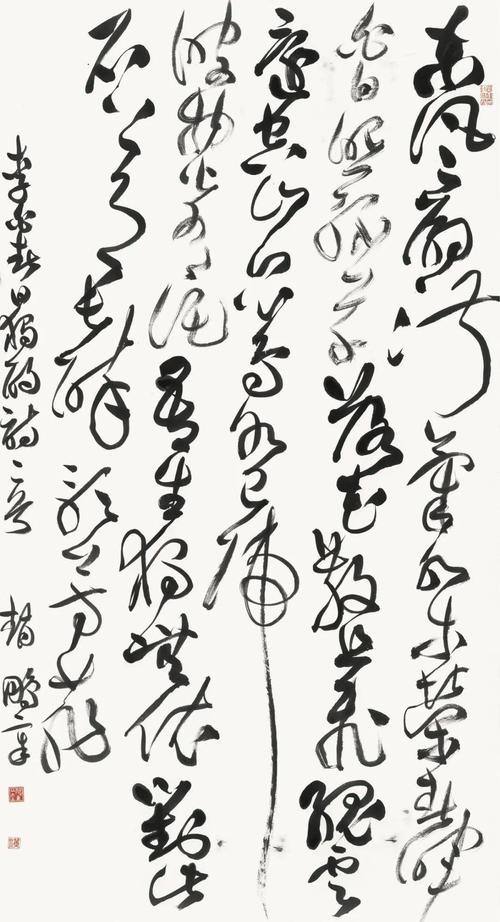 東風扇淑氣水木榮春暉
白日照綠草落花散且飛孤雲
還空山眾鳥各已歸
彼物皆有託吾生獨無依對此
石上月長醉歌芳菲
李白春日獨酌詩一首 鵬